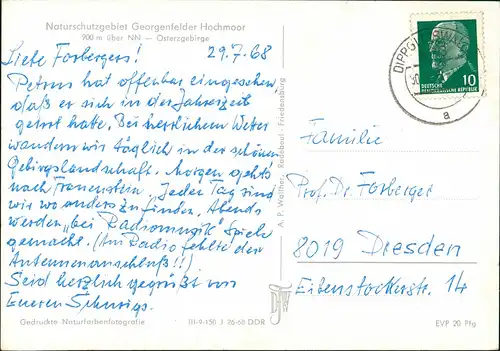 Naturschutzgebiet Georgenfelder Hochmoor
900 m über NN — Osterzgebirge
Liebe Forbergers! 29.7.68
Petrus hat offenbar eingesehen,
daß er sich in der Jahreszeit
geirrt hatte. Bei herrlichem Wetter
wandern wir täglich in der schönen
Gebirgslandschaft. Morgen gehts
nach Frauenstein. Jeden Tag sind
wir wo anders zu finden. Abends
werden „bei Radiomusik" Spiele
gemacht. (Am Radio fehlte der
Antennenanschluß!!)
Seid herzlich gegrüßt von
Eueren
Gedruckte Naturfarbenfotografie III-9-150 J 26-68 DDR
A. P. Walther, Radebeul-Friedensburg
DIPPOLDISWALDE
a
10
DEUTSCHE
DEMOKRATISCHE REPUBLIK
Familie
Prof. Dr. Forberger
8019 Dresden
Eibenstockerstr. 14
EVP 20 Pfg